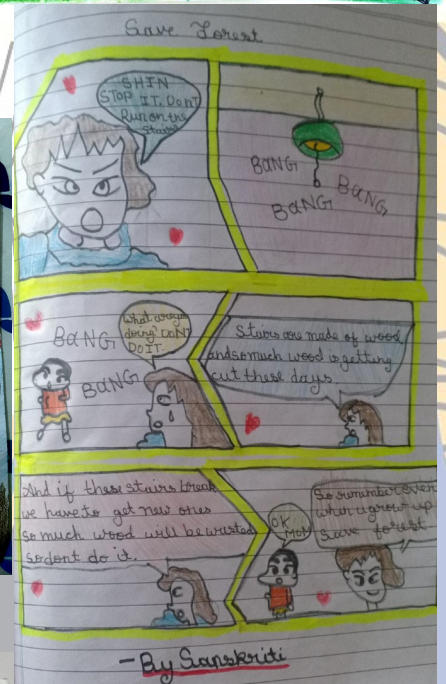 Save Forest
SHIN
STOP IT. Dont
Run on the
stairs
BANG
BANG
BANG
BANG
BANG
What are you
doing DONT
DO IT
Stairs are made of wood
and so much wood is getting
cut these days.
And if these stairs break
we have to get new ones
so much wood will be wasted
so dont do it.
OK
MOM
So remember even
when u grow up
save forest
- By Sanskriti